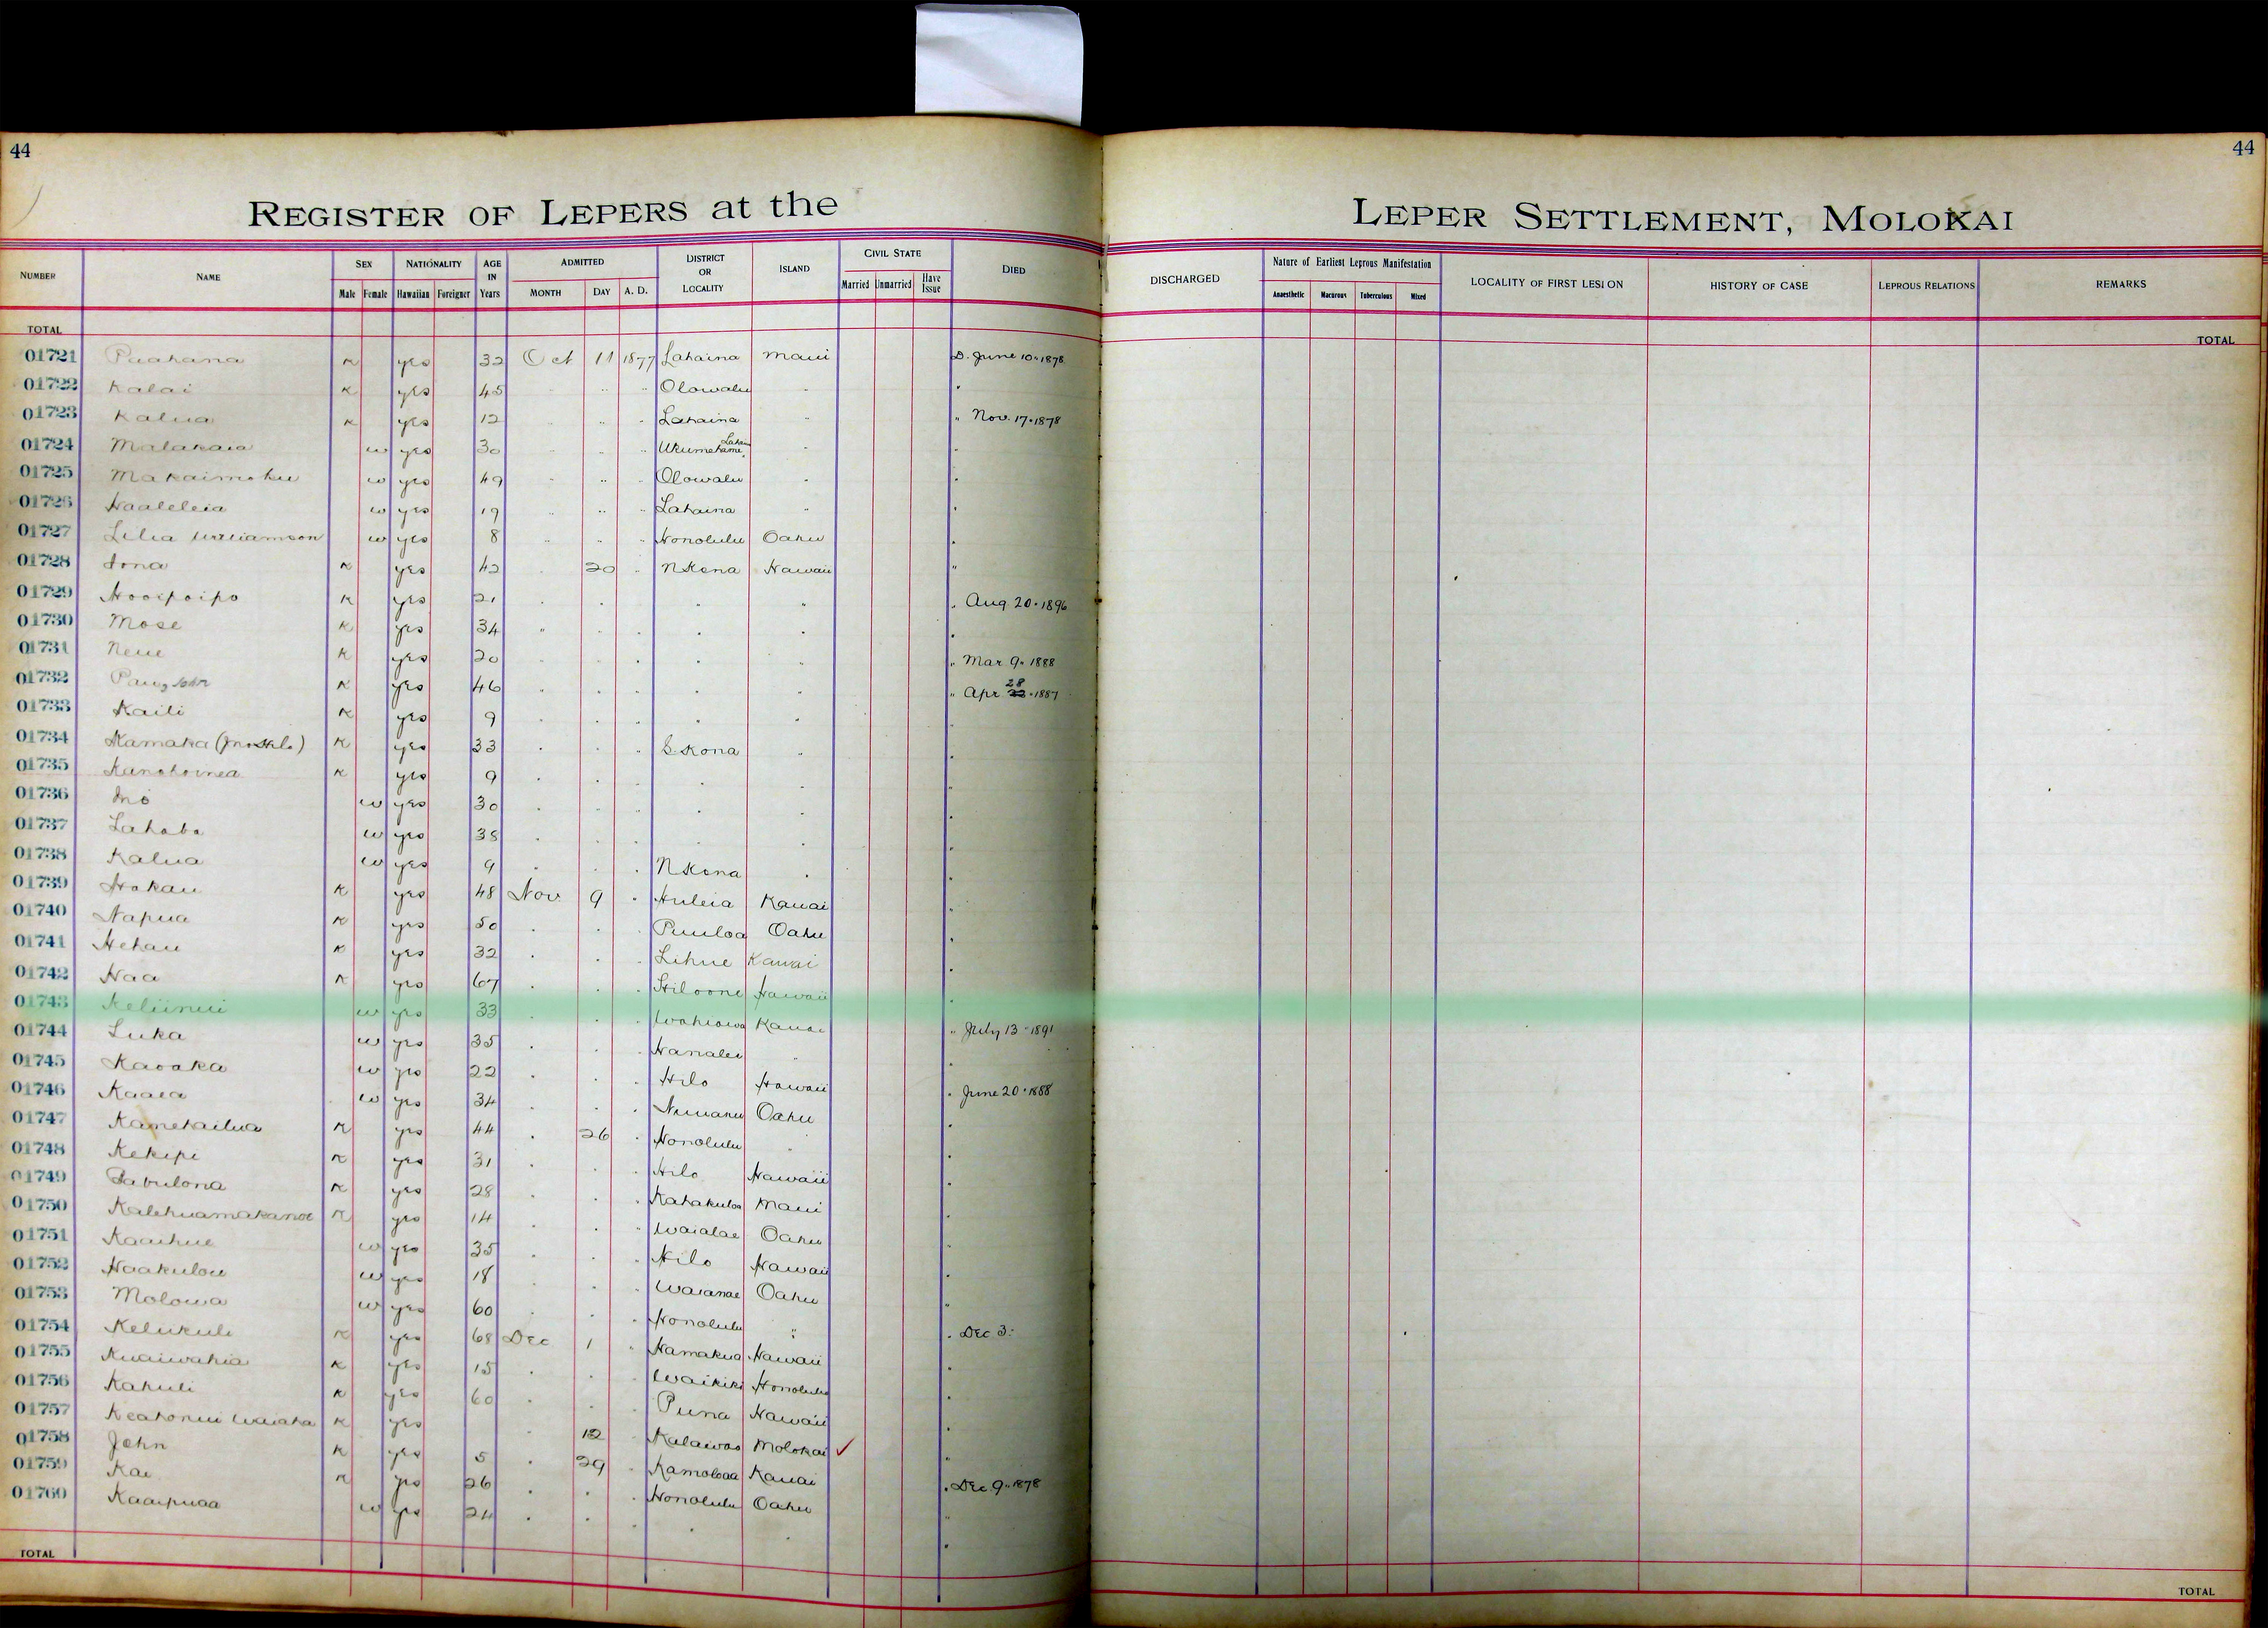 44
44
REGISTER OF LEPERS at the LEPER SETTLEMENT, MOLOKAI
NUMBER NAME SEX NATIONALITY AGE IN Years ADMITTED DISTRICT OR LOCALITY ISLAND CIVIL STATE DIED DISCHARGED Nature of Earliest Leprous Manifestation LOCALITY OF FIRST LESION HISTORY OF CASE LEPROUS RELATIONS REMARKS
Male Female Hawaiian Foreigner MONTH DAY A. D. Married Unmarried Have Issue Anaesthetic Macurous Tuberculous Mixed
TOTAL TOTAL
01721 Puahana K yes 32 Oct 11 1877 Lahaina Maui D. June 10 " 1878
01722 Kalai K yes 45 " " " Olowalu " "
01723 Kalua K yes 12 " " " Lahaina " " Nov. 17 " 1878
01724 Malakaia w yes 30 " " " Ukumehame " "
01725 Makaimoku w yes 49 " " " Olowalu " "
01726 Haaleleia w yes 19 " " " Lahaina " "
01727 Lilia Williamson w yes 8 " " " Honolulu Oahu "
01728 Iona K yes 42 " 20 " N Kona Hawaii "
01729 Hooipoipo K yes 21 " " " " " " Aug. 20 " 1896
01730 Mose K yes 34 " " " " " "
01731 Neue K yes 20 " " " " " " Mar. 9 " 1888
01732 John K yes 46 " " " " " " Apr 28 " 1887
01733 Kaili K yes 9 " " " " " "
01734 Kamaka K yes 33 " " " S. Kona " "
01735 K yes 9 " " " " " "
01736 w yes 30 " " " " " "
01737 Lahaba w yes 38 " " " " " "
01738 Kalua w yes 9 " " " N Kona " "
01739 Hokau K yes 48 Nov 9 " Huleia Kauai "
01740 Napua K yes 50 " " " Puuloa Oahu "
01741 Hehau K yes 32 " " " Lihue Kauai "
01742 Naa K yes 67 " " " Hiloone Hawaii "
01743 Keliinui w yes 33 " " " Wahiawa Kauai " July 13 " 1891
01744 Luka w yes 35 " " " Hanalei " "
01745 Kaoaka w yes 22 " " " Hilo Hawaii " June 20 " 1888
01746 Kaaea w yes 34 " " " Nuuanu Oahu "
01747 Kamehailua K yes 44 " 26 " Honolulu " "
01748 Kekipi K yes 31 " " " Hilo Hawaii "
01749 Zabulona K yes 28 " " " Kahakuloa Maui "
01750 Kalehuamakanoe K yes 14 " " " Waialae Oahu "
01751 Kaaihue w yes 35 " " " Hilo Hawaii "
01752 Haakulou w yes 18 " " " Waianae Oahu "
01753 Molowa w yes 60 " " " Honolulu " " Dec 3.
01754 Kelukuli K yes 68 Dec 1 " Hamakua Hawaii "
01755 Kuaiwahia K yes 15 " " " Waikiki Honolulu "
01756 Kahuli K yes 60 " " " Puna Hawaii "
01757 Keahonui Waiaha K yes " 12 " Kalawao Molokai ✓ "
01758 John K yes 5 " 29 " Kamoloaa Kauai " Dec 9 " 1878
01759 Kai K yes 26 " " " Honolulu Oahu "
01760 Kaaipuaa w yes 24 " " " " " "
TOTAL TOTAL